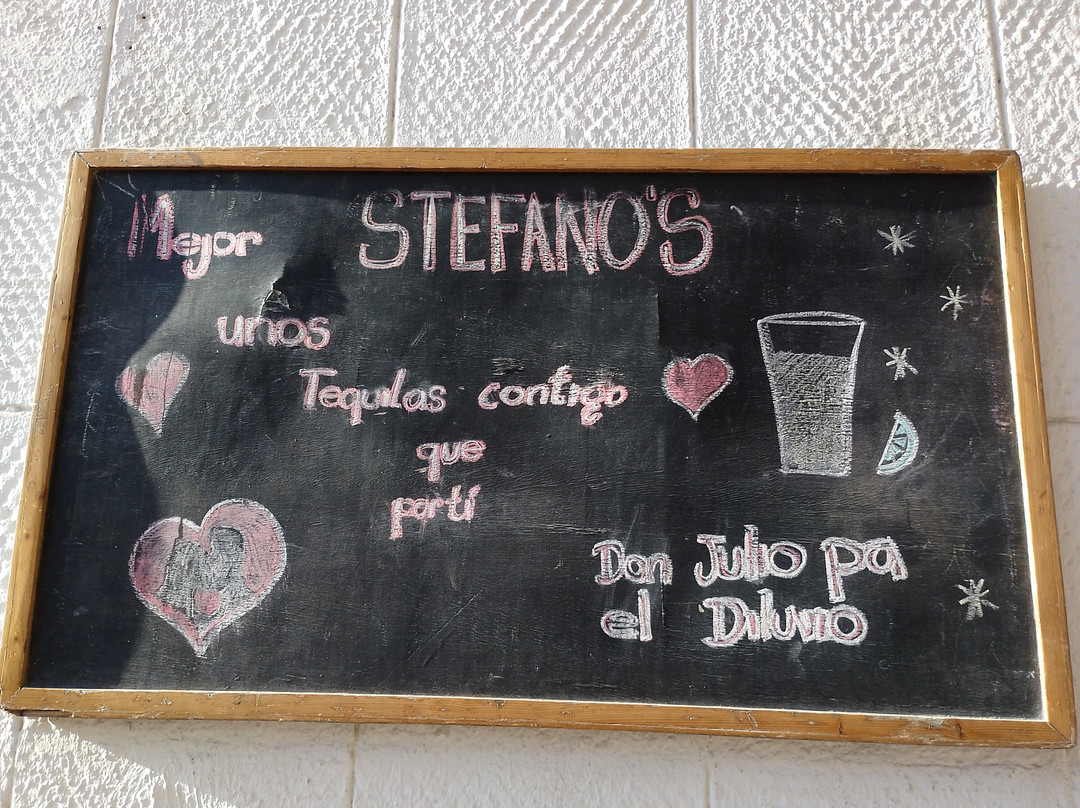 STEFANO'S
Mejor
unos
Tequilas contigo
que
por tí
Don Julio pa
el Diluvio